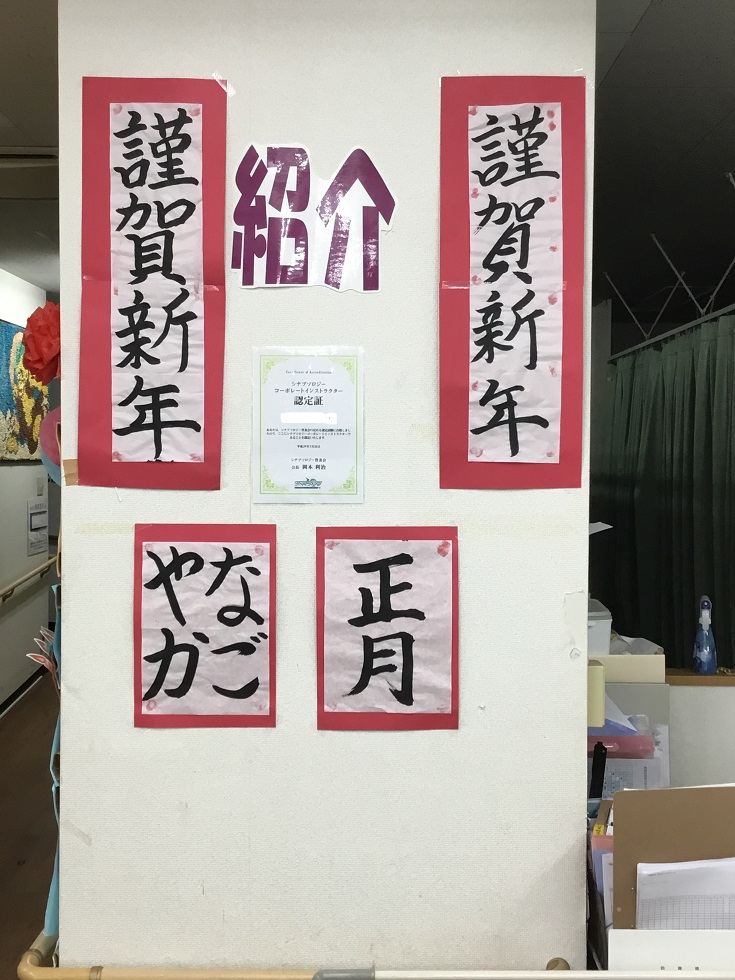 謹賀新年
紹介
謹賀新年
シナプソロジー
コーポレートインストラクター
認定証
シナプソロジー普及会
会長 岡本 利治
なご
やか
正月